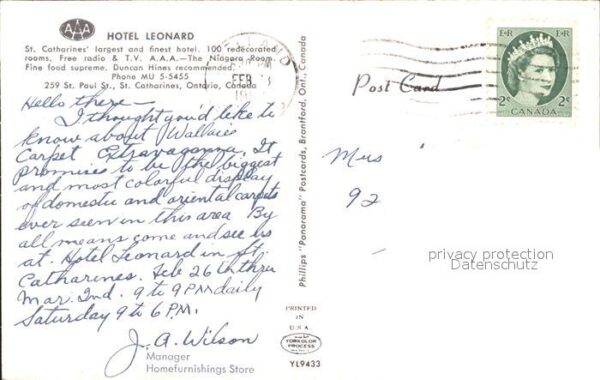 AAA
HOTEL LEONARD
St. Catharines' largest and finest hotel. 100 redecorated
rooms. Free radio & T.V. A.A.A.—The Niagara Room.
Fine food supreme. Duncan Hines recommended.
Phone MU 5-5455
259 St. Paul St., St. Catharines, Ontario, Canada
Hello there—
I thought you'd like to
know about Wallace
Carpet Extravaganza. It
promises to be the biggest
and most colorful display
of domestic and oriental carpets
ever seen in this area By
all means come and see us
at. Hotel Leonard in St.
Catharines. Feb 26th thru
Mar. 2nd. 9 to 9 PM daily
Saturday 9 to 6 P.M.
J. A. Wilson
Manager
Homefurnishings Store
Phillips' "Panorama" Postcards, Brantford, Ont., Canada
PRINTED
IN
U.S.A.
YORKOLOR
PROCESS
YL9433
FEB
PM
Post Card
E R
E R
2¢
2¢
CANADA
Mrs
92
privacy protection
Datenschutz